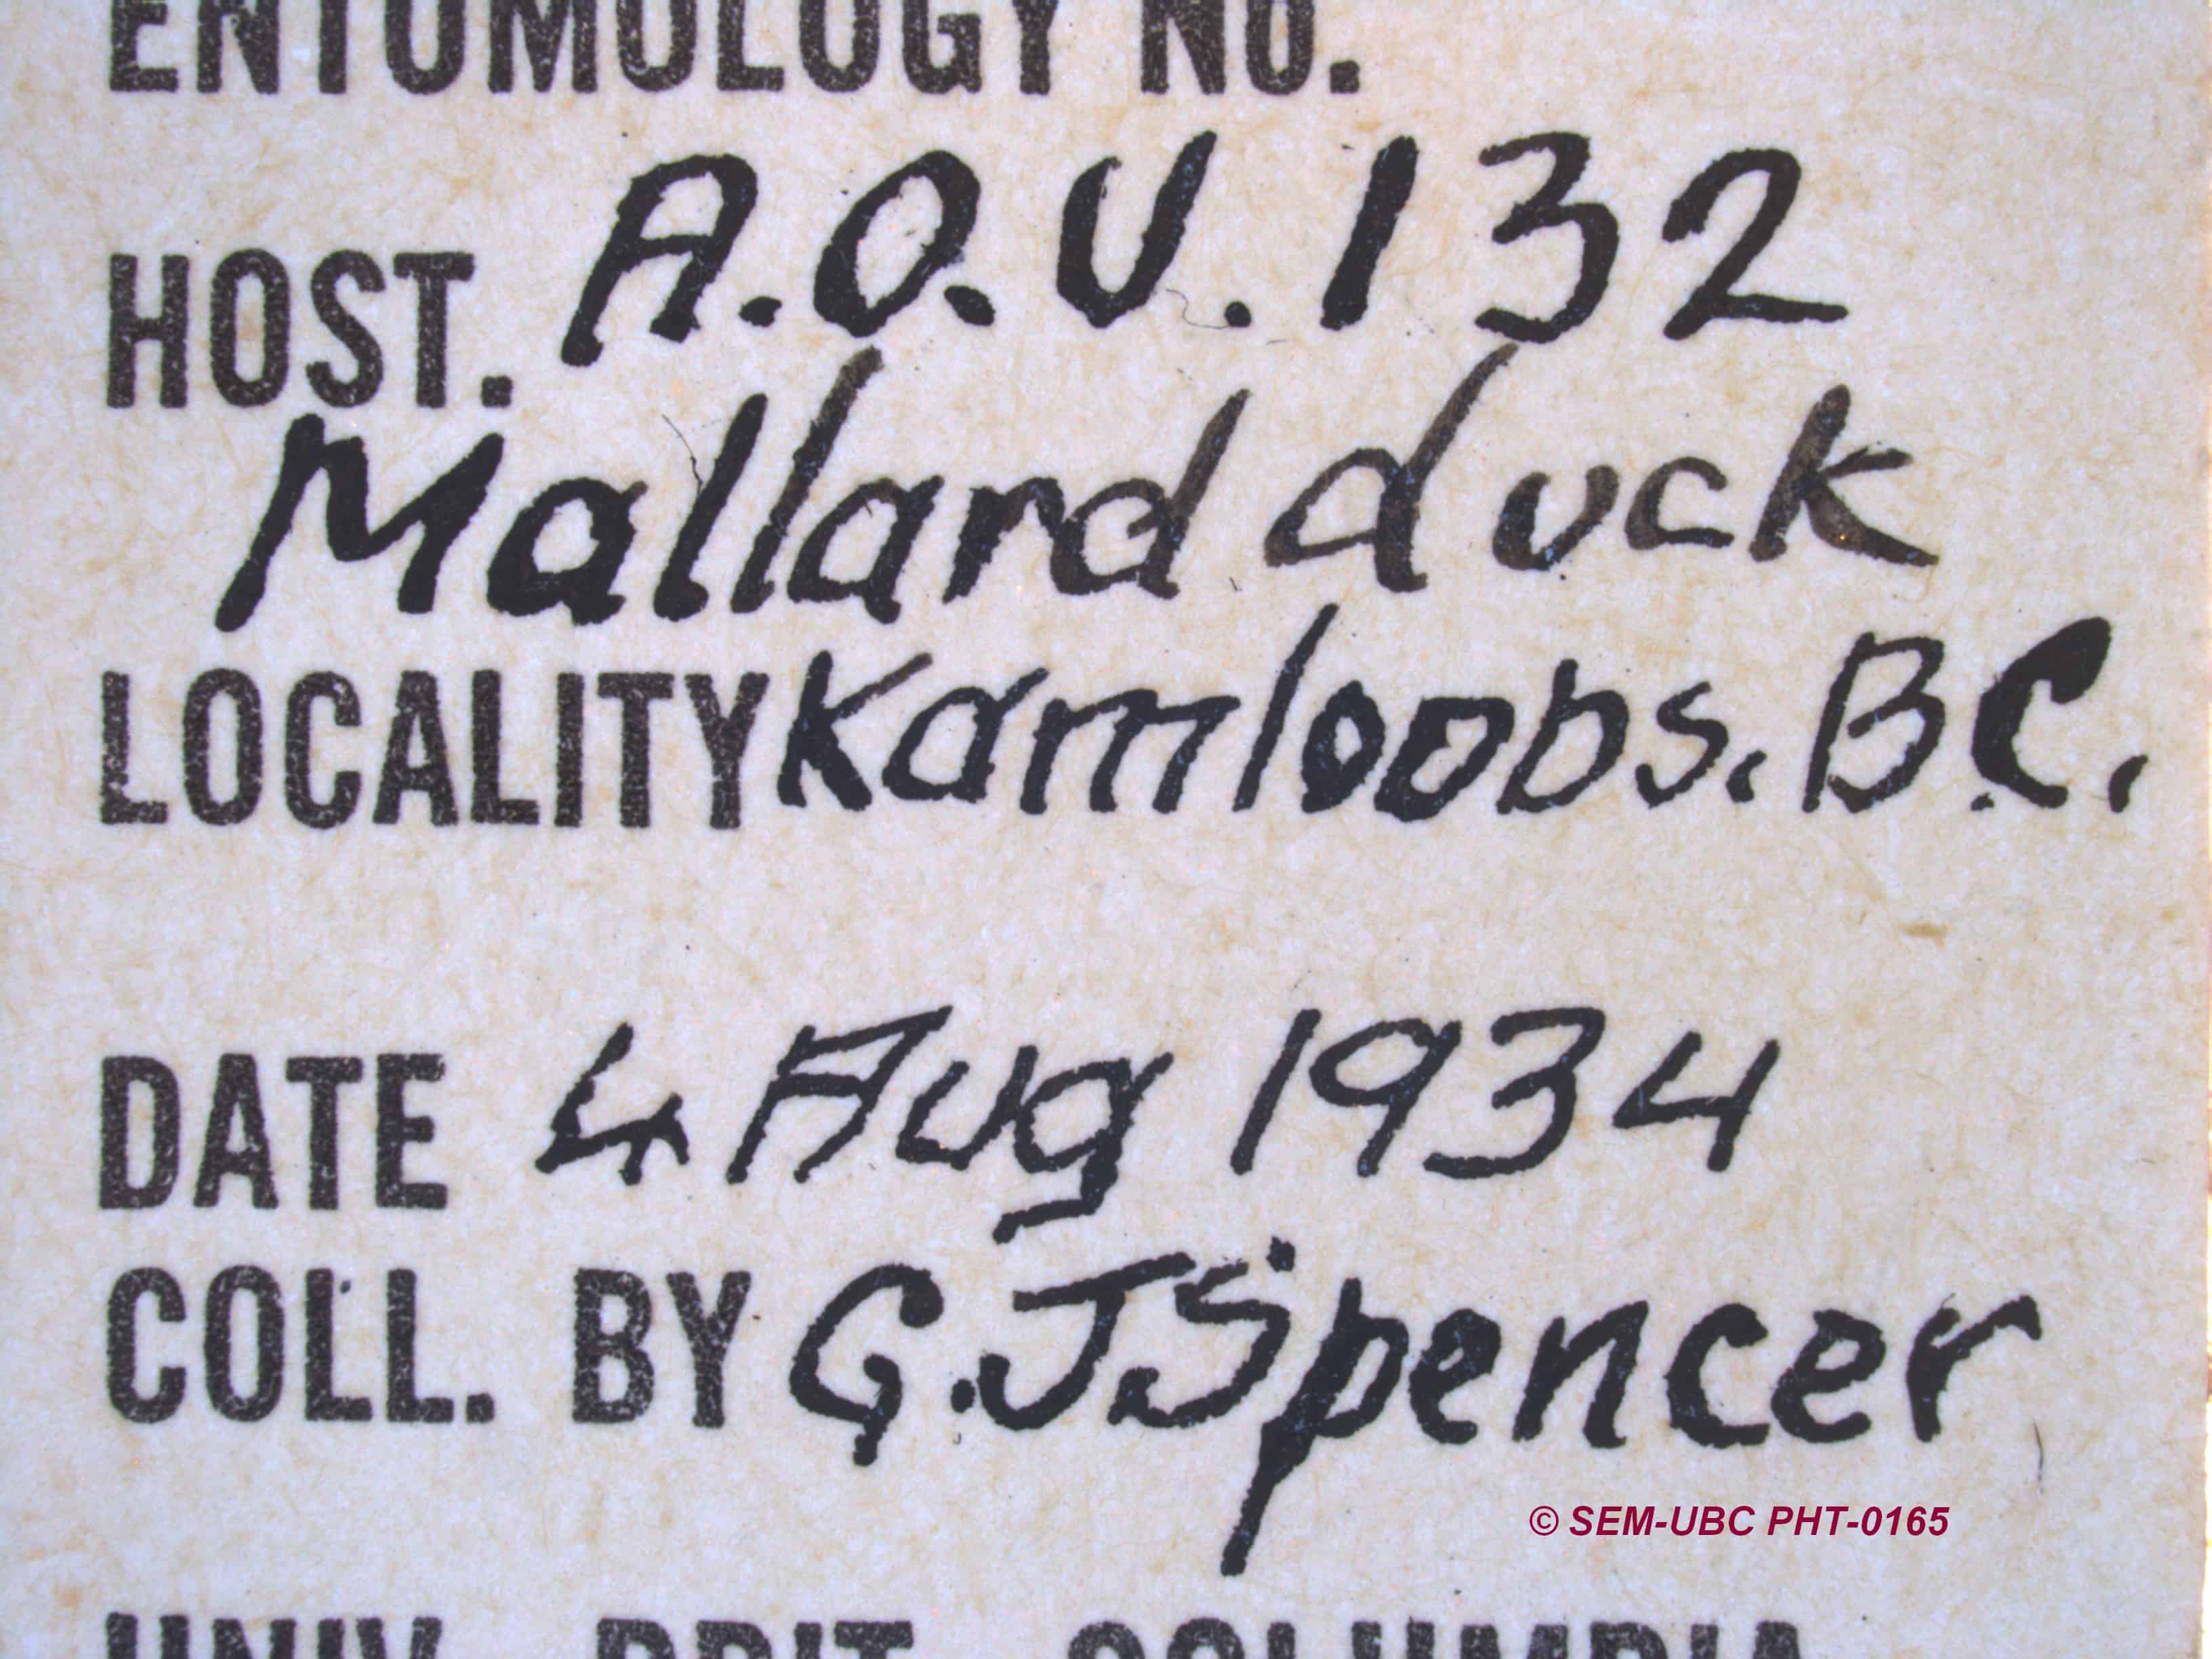 ENTOMOLOGY NO.
HOST. A.O.U. 132
Mallard duck
LOCALITY Kamloops. B.C.
DATE 4 Aug 1934
COLL. BY G.J.Spencer
© SEM-UBC PHT-0165
UNIV. BRIT. COLUMBIA